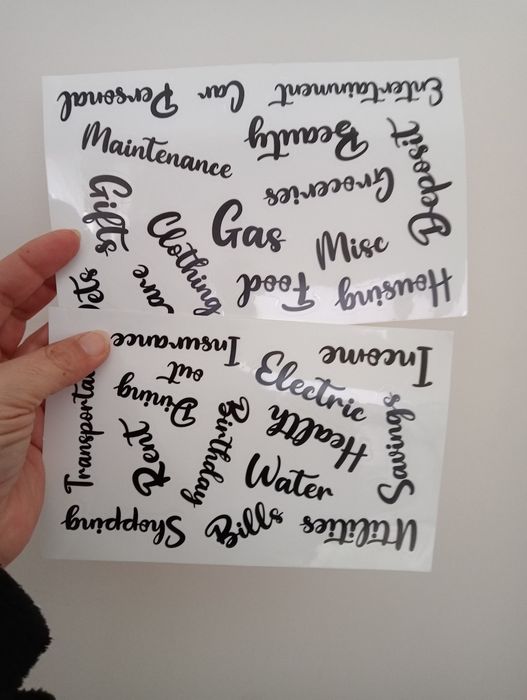 Entertainment
Car
Personal
Maintenance
Beauty
Deposit
Groceries
Gifts
Clothing
Gas
Misc
Food
Housing
Insurance
Income
Dining out
Electric
Birthday
Health
Savings
Rent
Water
Shopping
Bills
Utilities